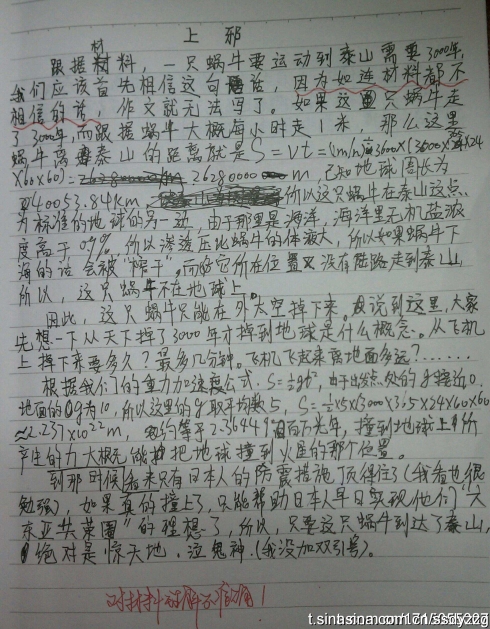 上邪
材
跟据材料，一只蜗牛要运动到泰山需要3000年，
我们应该首先相信这句话，因为如连材料都不
相信的话，作文就无法写了。如果这只蜗牛走
了3000年，而跟据蜗牛大概每小时走1米，那么这里
蜗牛离泰山的距离就是S=vt=(1m/h)
m，已知地球周长为
40053.84km，所以这只蜗牛在泰山这点
为标准的地球的另一边，由于那里是海洋，海洋里无机盐浓
度高于0.9%，所以渗透压比蜗牛的体液大，所以如果蜗牛下
海的话会被“榨干”，而它所在位置又没有陆路走到泰山，
所以，这只蜗牛不在地球上。
因此，这只蜗牛只能在外太空掉下来。说到这里，大家
先想一下从天下掉了3000年才掉到地球是什么概念。从飞机
上掉下来要多久？最多几分钟。飞机飞起来离地面多远？……
根据我们的重力加速度公式，S=½gt²，由于出发点处的g接近0，
地面的g为10，所以这里的g取平均数5，S=½×5×(3000×365×24×60×60
≈2.237×10²²m，约等于2.3644百万光年，撞到地球上所
产生的力大概无能把地球撞到火星的那个位置。
到那时候看来只有日本人的防震措施顶得住了(我看也很
勉强)，如果真的撞上了，只能帮助日本人早日实现他们“大
东亚共荣圈”的理想了，所以，只要这只蜗牛到达了泰山，
绝对是惊天地，泣鬼神。(我没加双引号)。
对材料理解不准确！